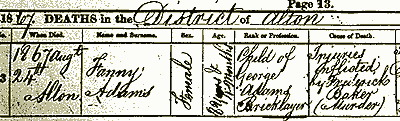 Page 13.
1867. DEATHS in the District of Alton
When Died.
Name and Surname.
Sex.
Age.
Rank or Profession.
Cause of Death.
3
1867 Augt
24th
Alton
Fanny
Adams
Female
8 Years 4
Months
Child of
George
Adams
Bricklayer
Injuries
inflicted
by Fredrick
Baker
(Murder)